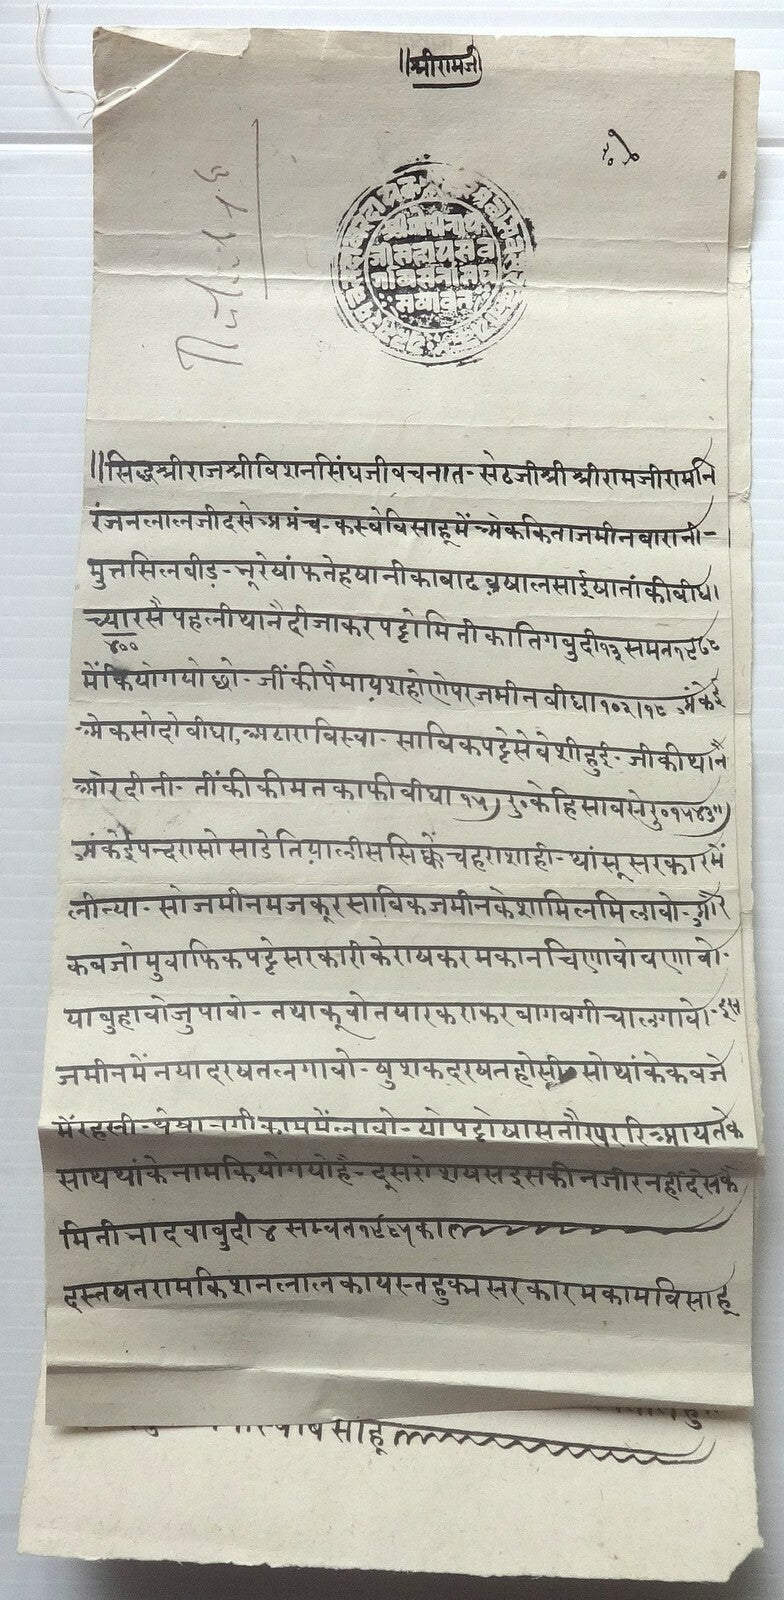 ॥श्रीरामजी
श्रीगोपीनाथ
जी सहाय सब
॥सिद्धश्रीराजश्रीबिशनसिंघजीबचनात - सेठजीश्रीश्रीरामजीरामनि
रंजनलालजीदसे अप्रमंच - कस्बेबिसाहूमें अेककिताजमीनबारानी -
मुत्तसिलबीड़ - नूरेषांफतेहषानीकाबाढ ब षालसाईषाताकीबीघा
च्यारसैपहलीथानैदीजाकरपट्टोमितीकातिगबुदी१३समत१९८८
४००
मेंकियोगयोछो - जींकीपैमायशहोणेपरजमीनबीघा१०२।१८ अंकेई
अेकसोदोबीघा, अठाराबिस्वा - साबिकपट्टेसेबेशीहुई - जीकीथानै
ओरदीनी - तींकीकीमतकाफीबीघा १५) रु॰केहिसाबसेरु॰१५४३॥)
अंकेईपन्दरासोसाडेतियालीससिक्केचहराशाही - थांसूसरकारमें
लीन्या - सोजमीनमजकूरसाबिकजमीनकेशामिलमिलाबो - और
कबजोमुवाफिकपट्टेसरकारीकेराषकरमकानचिणाबोबणाबो -
याबुहाबोजुपाबो - तथाकूबोतयारकराकरबागबगीचालगाबो - इस
जमीनमेंनयादरषतलगाबो - षुशकदरषतहोसी सोथांकेकबजे
मेंरहसी - थेषानगीकाममेंलाबो - योपट्टोषासतौरपररिआयतके
साथथांकेनामकियोगयोहै - दूसरोशषसइसकीनजीरनहींदेसकै
मितीभादवाबुदी४सम्वत१९९५का
दस्तषतरामकिशनलालकायस्तहुक्मसरकारमकामबिसाहू
बिसाहू